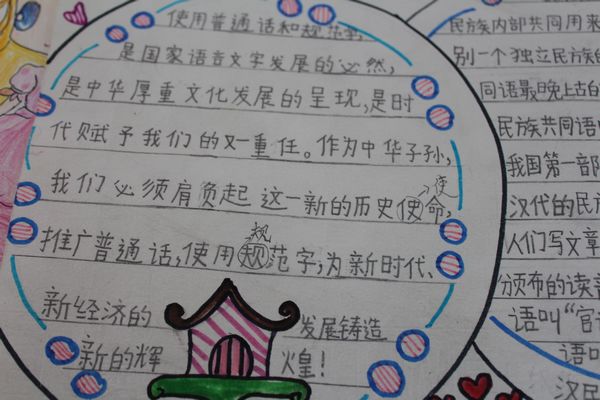 使用普通话和规范字,
是国家语言文字发展的必然,
是中华厚重文化发展的呈现,是时
代赋予我们的又一重任。作为中华子孙,
我们必须肩负起这一新的历史使命,
使
推广普通话,使用规范字,为新时代、
规
新经济的 发展铸造
新的辉 煌!
民族内部共同用来
别一个独立民族的
同语最晚上古的
民族共同语
我国第一部
汉代的民
人们写文章
颁布的读
语叫“官
语叫
汉民